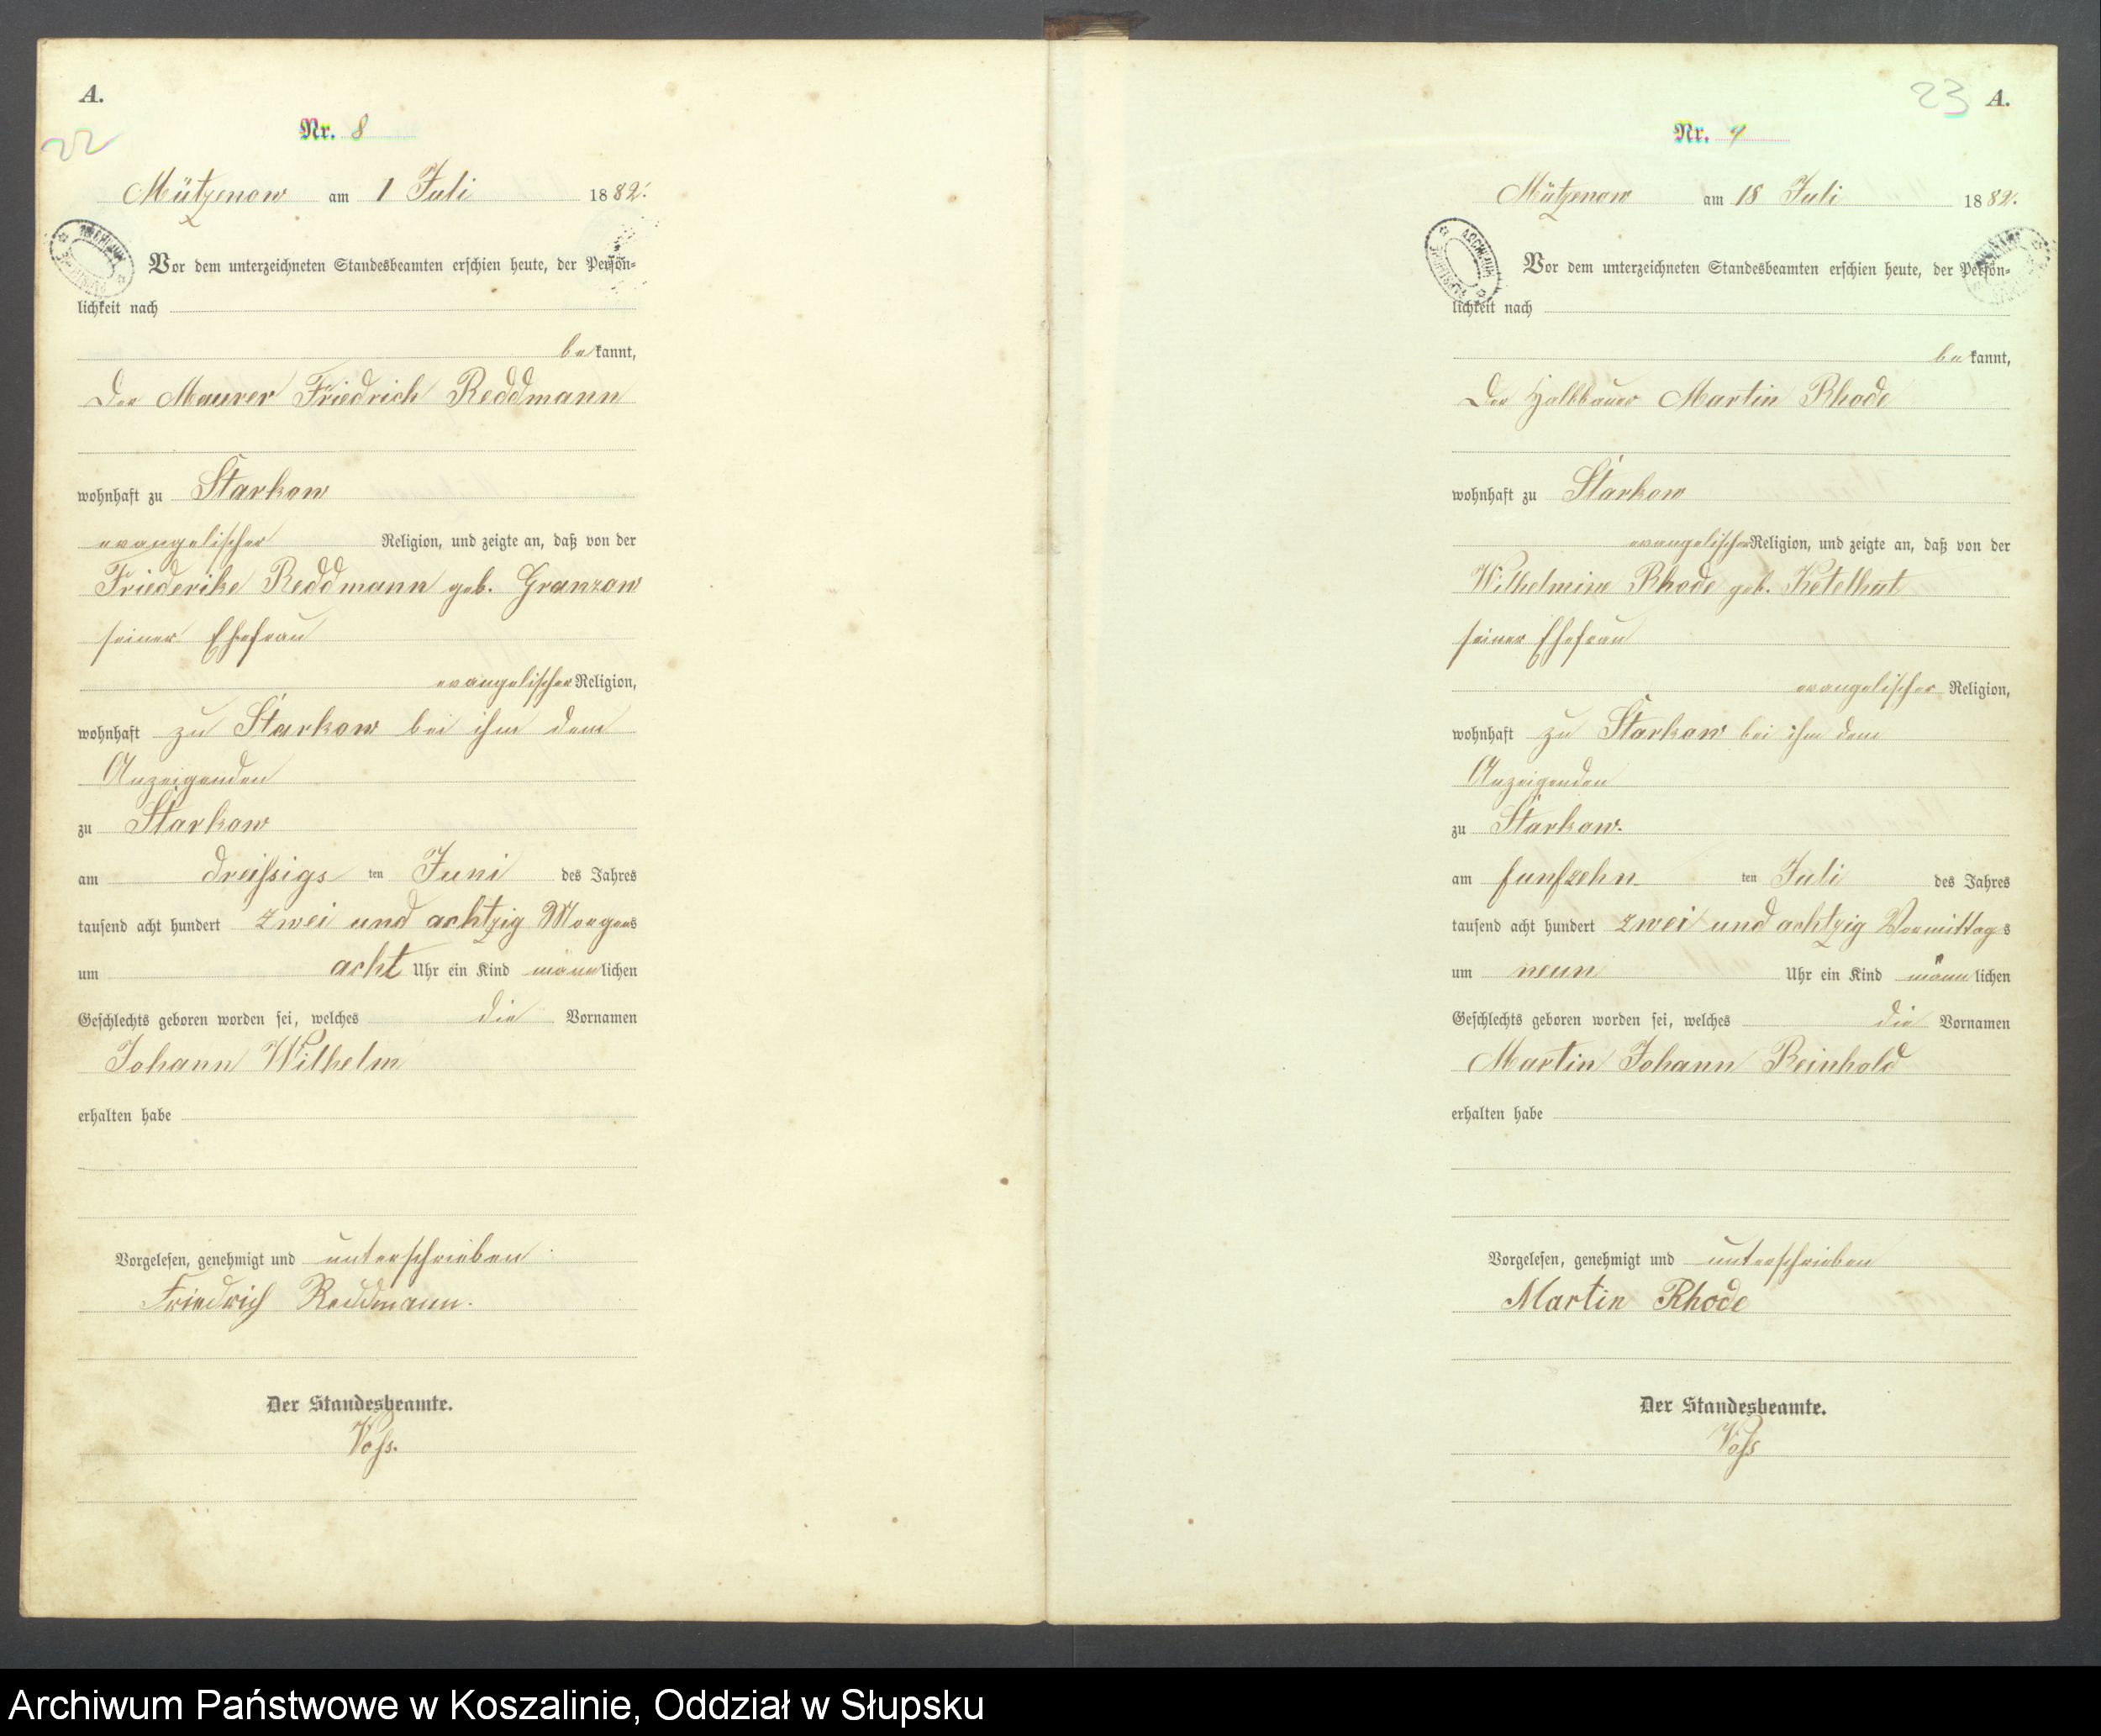 A.
22
Nr. 8
Mützenow am 1 Juli 1882.
Vor dem unterzeichneten Standesbeamten erschien heute, der Persön-
lichkeit nach
bekannt,
Der Maurer Friedrich Reddmann
wohnhaft zu Starkow
evangelischer Religion, und zeigte an, daß von der
Friederike Reddmann geb. Granzow
seiner Ehefrau
evangelischer Religion,
wohnhaft zu Starkow bei ihm dem
Anzeigenden
zu Starkow
am dreissigsten Juni des Jahres
tausend acht hundert zwei und achtzig Morgens
um acht Uhr ein Kind männlichen
Geschlechts geboren worden sei, welches die Vornamen
Johann Wilhelm
erhalten habe
Vorgelesen, genehmigt und unterschrieben
Friedrich Reddmann.
Der Standesbeamte.
Voss.
23 A.
Nr. 9
Mützenow am 18 Juli 1882.
Vor dem unterzeichneten Standesbeamten erschien heute, der Persön-
lichkeit nach
bekannt,
Der Halbbauer Martin Rhode
wohnhaft zu Starkow
evangelischer Religion, und zeigte an, daß von der
Wilhelmine Rhode geb. Ketelhut
seiner Ehefrau
evangelischer Religion,
wohnhaft zu Starkow bei ihm dem
Anzeigenden
zu Starkow.
am funfzehnten Juli des Jahres
tausend acht hundert zwei und achtzig Vormittags
um neun Uhr ein Kind männlichen
Geschlechts geboren worden sei, welches die Vornamen
Martin Johann Reinhold
erhalten habe
Vorgelesen, genehmigt und unterschrieben
Martin Rhode
Der Standesbeamte.
Voss
Archiwum Państwowe w Koszalinie, Oddział w Słupsku